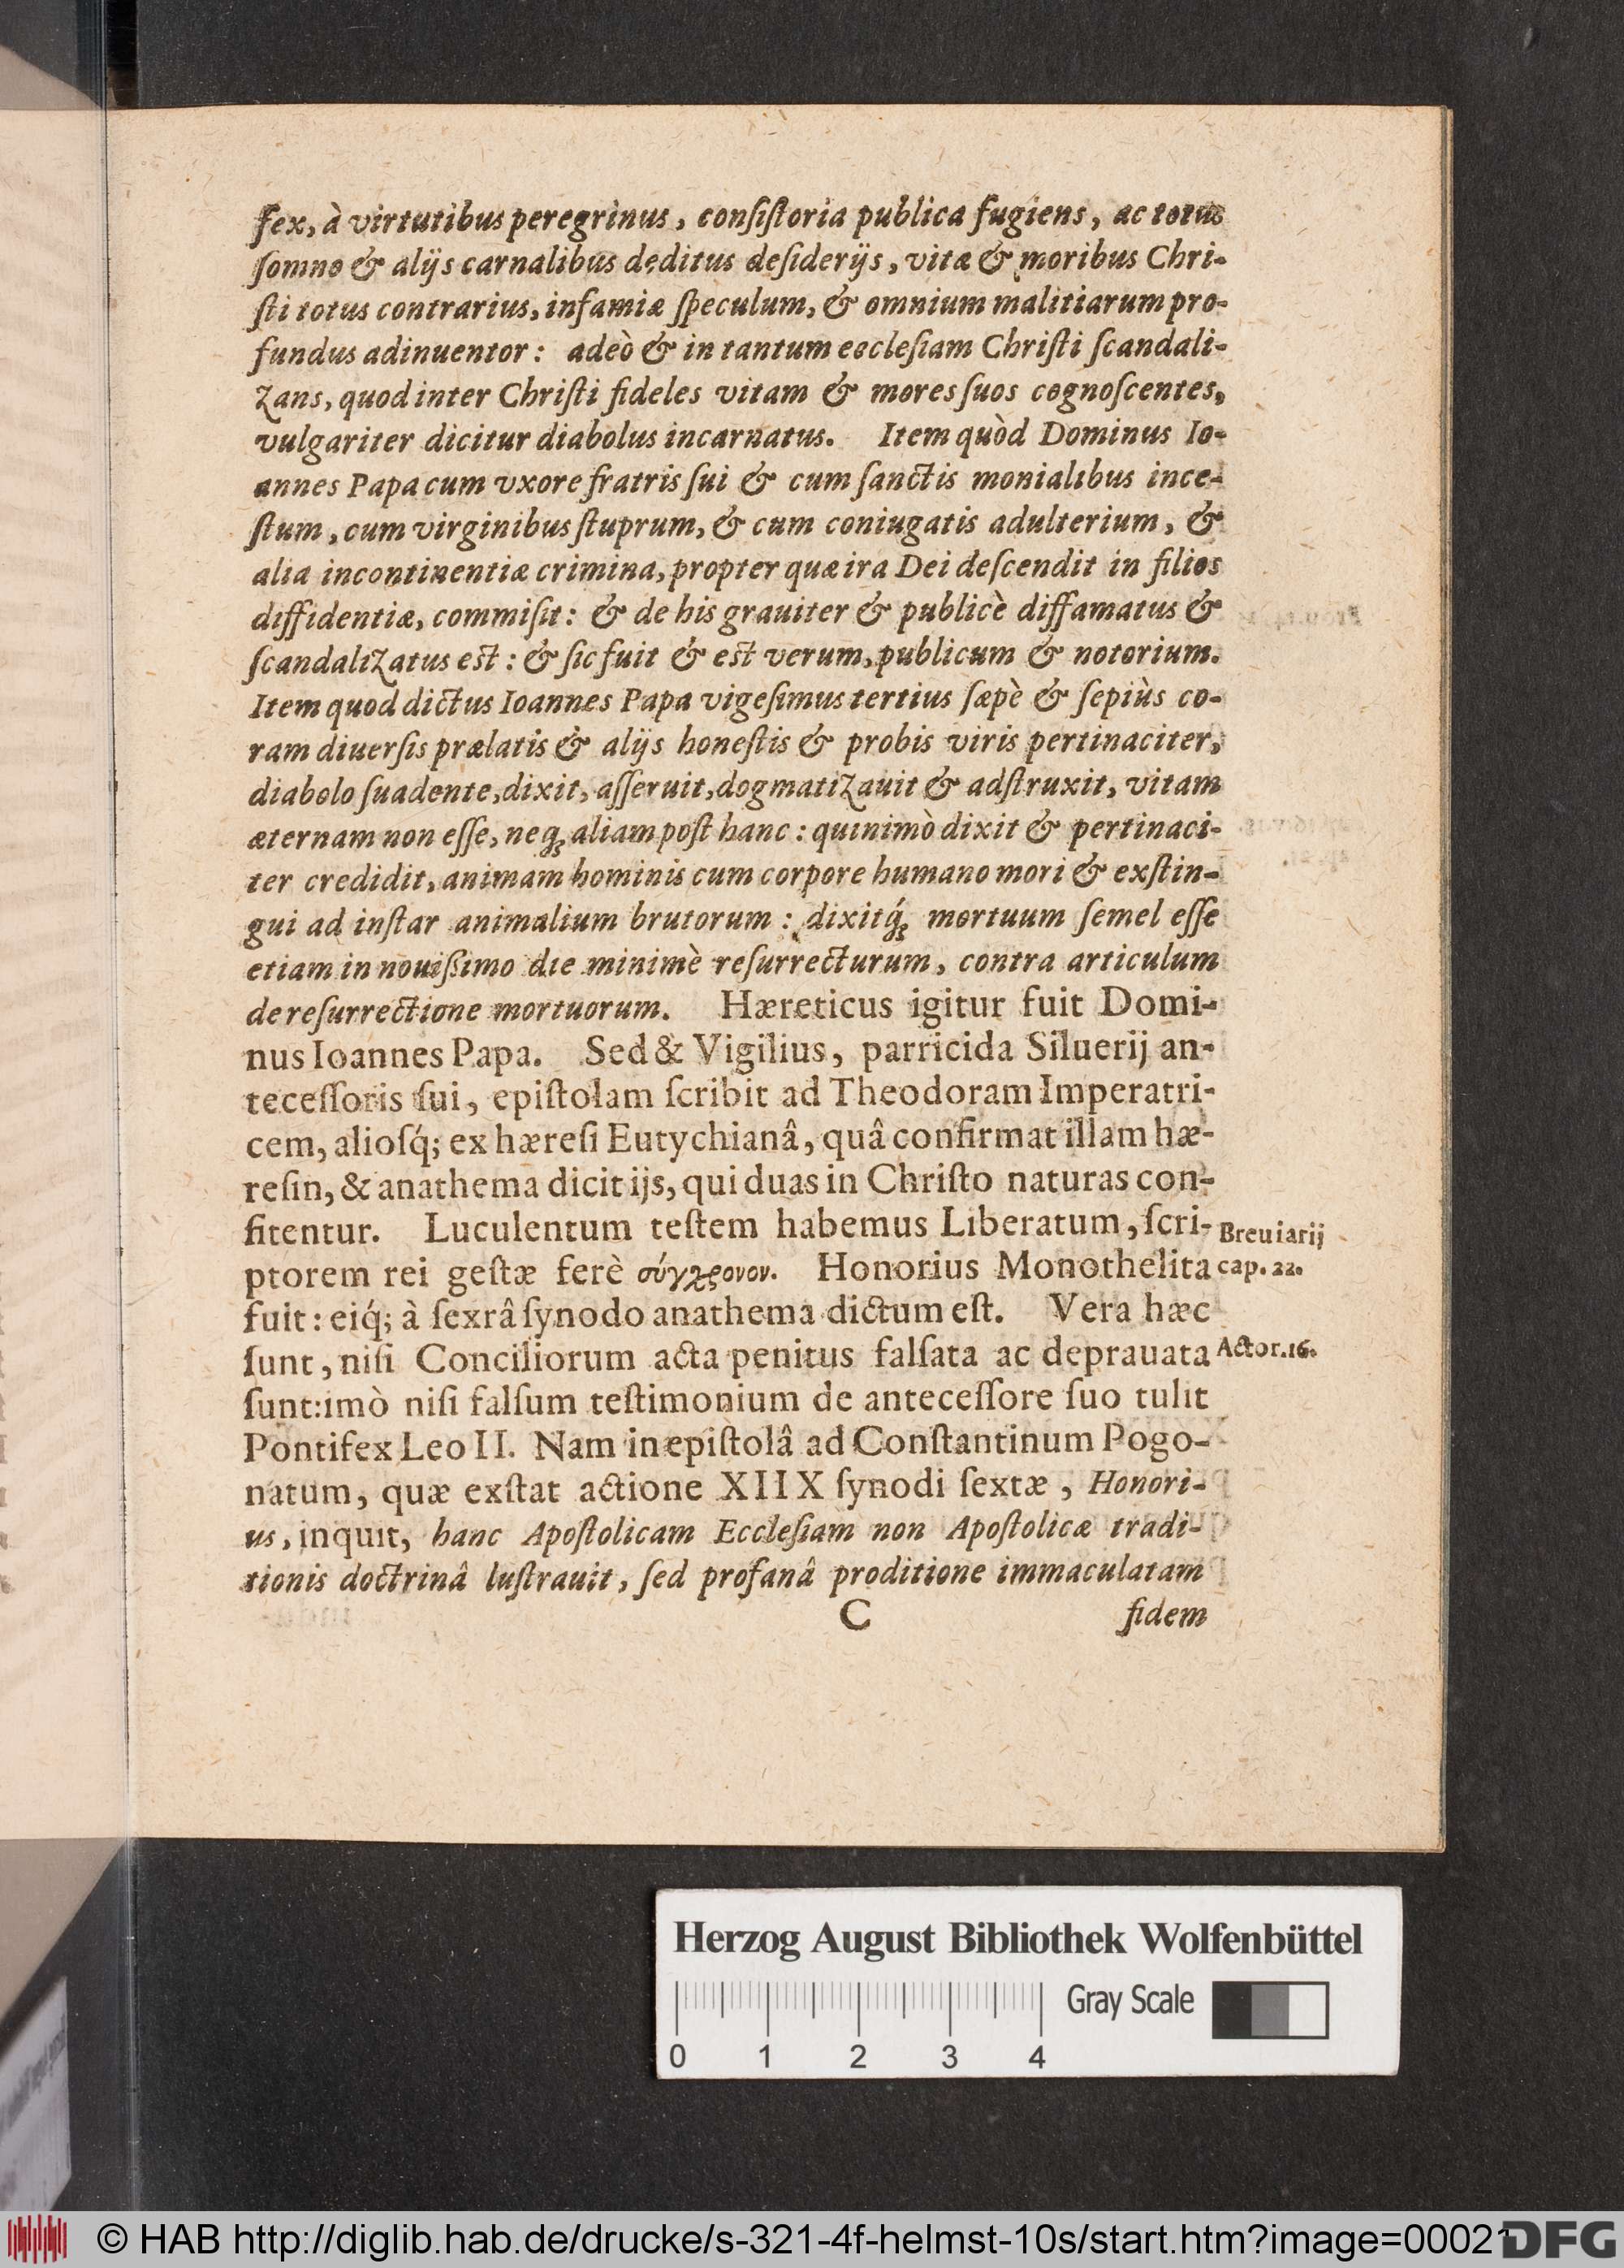 fex, à virtutibus peregrinus, conſiſtoria publica fugiens, ac totus
ſomno & alijs carnalibus deditus deſiderijs, vitæ & moribus Chri-
ſti totus contrarius, infamiæ ſpeculum, & omnium malitiarum pro-
fundus adinuentor: adeò & in tantum eccleſiam Chriſti ſcandali-
zans, quod inter Chriſti fideles vitam & mores ſuos cognoſcentes,
vulgariter dicitur diabolus incarnatus. Item quòd Dominus Io-
annes Papa cum vxore fratris ſui & cum ſanctis monialibus ince-
ſtum, cum virginibus ſtuprum, & cum coniugatis adulterium, &
alia incontinentiæ crimina, propter quæ ira Dei deſcendit in filios
diffidentiæ, commiſit: & de his grauiter & publicè diffamatus &
ſcandalizatus est: & ſic fuit & est verum, publicum & notorium.
Item quod dictus Ioannes Papa vigeſimus tertius ſæpè & ſepiùs co-
ram diuerſis prælatis & alijs honeſtis & probis viris pertinaciter,
diabolo ſuadente, dixit, aſſeruit, dogmatizauit & adſtruxit, vitam
æternam non eſſe, neq́ꝫ aliam poſt hanc: quinimò dixit & pertinaci-
ter credidit, animam hominis cum corpore humano mori & exſtin-
gui ad inſtar animalium brutorum: dixitq́ꝫ mortuum ſemel eſſe
etiam in nouißimo die minimè reſurrecturum, contra articulum
de reſurrectione mortuorum. Hæreticus igitur fuit Domi-
nus Ioannes Papa. Sed & Vigilius, parricida Siluerij an-
teceſſoris ſui, epiſtolam ſcribit ad Theodoram Imperatri-
cem, alioſq́; ex hæreſi Eutychianâ, quâ confirmat illam hæ-
reſin, & anathema dicit ijs, qui duas in Chriſto naturas con-
fitentur. Luculentum teſtem habemus Liberatum, ſcri-
Breuiarij
ptorem rei geſtæ ferè σύγχρονον. Honorius Monothelita
cap. 22.
fuit: eiq́; à ſextâ ſynodo anathema dictum eſt. Vera hæc
ſunt, niſi Conciliorum acta penitus falſata ac deprauata
Actor. 16.
ſunt: imò niſi falſum teſtimonium de anteceſſore ſuo tulit
Pontifex Leo II. Nam in epiſtolâ ad Conſtantinum Pogo-
natum, quæ exſtat actione XIIX ſynodi ſextæ, Honori-
us, inquit, hanc Apoſtolicam Eccleſiam non Apoſtolicæ tradi-
tionis doctrinâ luſtrauit, ſed profanâ proditione immaculatam
C fidem
Herzog August Bibliothek Wolfenbüttel
Gray Scale
0 1 2 3 4
© HAB http://diglib.hab.de/drucke/s-321-4f-helmst-10s/start.htm?image=00021
DFG